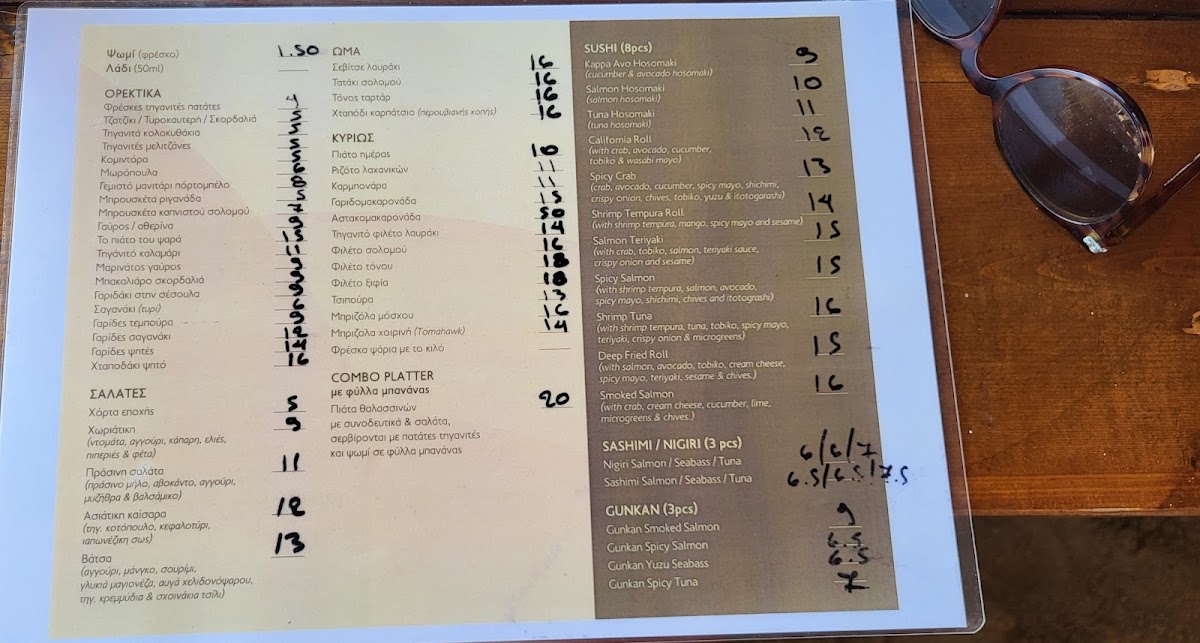 Ψωμί (φρέσκο) 1.50
Λάδι (50ml)
ΟΡΕΚΤΙΚΑ
Φρέσκες τηγανιτές πατάτες 4
Τζατζίκι / Τυροκαυτερή / Σκορδαλιά
Τηγανιτά κολοκυθάκια
Τηγανιτές μελιτζάνες
Κομιντόρα
Μωρόπουλα
Γεμιστό μανιτάρι πόρτομπέλο
Μπρουσκέτα ριγανάδα
Μπρουσκέτα καπνιστού σολομού
Γαύρος / αθερίνα
Το πιάτο του ψαρά
Τηγάνιτό καλαμάρι
Μαρινάτος γαύρος
Μπακαλιάρο σκορδαλιά
Γαριδάκι στην σέσουλα
Σαγανάκι (τυρί)
Γαρίδες τεμπούρα
Γαρίδες σαγανάκι 12
Γαρίδες ψητές 14
Χταποδάκι ψητό 16
ΣΑΛΑΤΕΣ
Χόρτα εποχής 5
Χωριάτικη 9
(ντομάτα, αγγούρι, κάπαρη, ελιές,
πιπεριές & φέτα)
Πράσινη σαλάτα 11
(πράσινο μήλο, αβοκάντο, αγγούρι,
μυζήθρα & βαλσάμικο)
Ασιάτικη καίσαρα 12
(τηγ. κοτόπουλο, κεφαλοτύρι,
ιαπωνέζικη σως)
Βάτσα 13
(αγγούρι, μάνγκο, σουρίμι,
γλυκιά μαγιονέζα, αυγά χελιδονόψαρου,
τηγ. κρεμμύδια & σχοινάκια τσίλι)
ΩΜΑ
Σεβίτσε λαυράκι 16
Τατάκι σολομού 16
Τόνος ταρτάρ 16
Χταπόδι καρπάτσιο (περουβιανής κοπής) 16
ΚΥΡΙΩΣ
Πιάτο ημέρας 10
Ριζότο λαχανικών 11
Καρμπονάρα 11
Γαριδομακαρονάδα 15
Αστακομακαρονάδα 50
Τηγανιτό φιλέτο λαυράκι 14
Φιλέτο σολομού 16
Φιλέτο τόνου 18
Φιλέτο ξιφία 18
Τσιπούρα 13
Μπριζόλα μόσχου 16
Μπριζολα χοιρινή (Tomahawk) 14
Φρέσκα ψάρια με το κιλό
COMBO PLATTER
με φύλλα μπανάνας
Πιάτα θαλασσινών 20
με συνοδευτικά & σαλάτα,
σερβίρονται με πατάτες τηγανιτές
και ψωμί σε φύλλα μπανάνας
SUSHI (8pcs)
Kappa Avo Hosomaki 9
(cucumber & avocado hosomaki)
Salmon Hosomaki 10
(salmon hosomaki)
Tuna Hosomaki 11
(tuna hosomaki)
California Roll 12
(with crab, avocado, cucumber,
tobiko & wasabi mayo)
Spicy Crab 13
(crab, avocado, cucumber, spicy mayo, shichimi,
crispy onion, chives, tobiko, yuzu & itotogarashi)
Shrimp Tempura Roll 14
(with shrimp tempura, mango, spicy mayo and sesame)
Salmon Teriyaki 15
(with crab, tobiko, salmon, teriyaki sauce,
crispy onion and sesame)
Spicy Salmon 15
(with shrimp tempura, salmon, avocado,
spicy mayo, shichimi, chives and itotograshi)
Shrimp Tuna 16
(with shrimp tempura, tuna, tobiko, spicy mayo,
teriyaki, crispy onion & microgreens)
Deep Fried Roll 15
(with salmon, avocado, tobiko, cream cheese,
spicy mayo, teriyaki, sesame & chives.)
Smoked Salmon 16
(with crab, cream cheese, cucumber, lime,
microgreens & chives.)
SASHIMI / NIGIRI (3 pcs)
Nigiri Salmon / Seabass / Tuna 6/6/7
Sashimi Salmon / Seabass / Tuna 6.5/6.5/7.5
GUNKAN (3pcs)
Gunkan Smoked Salmon 9
Gunkan Spicy Salmon 6.5
Gunkan Yuzu Seabass 6.5
Gunkan Spicy Tuna 7